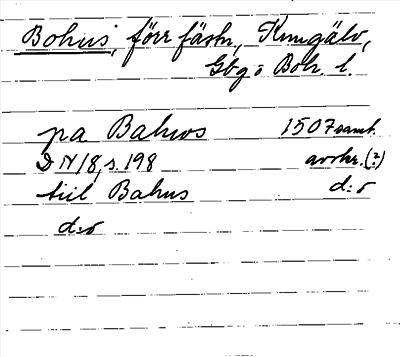 Bohus, förr fästn, Kungälv,
Gbg o Boh. l.
pa Bahws 1507 samt.
D N 18, s. 198 avskr. (?)
till Bahus d:o
d:o